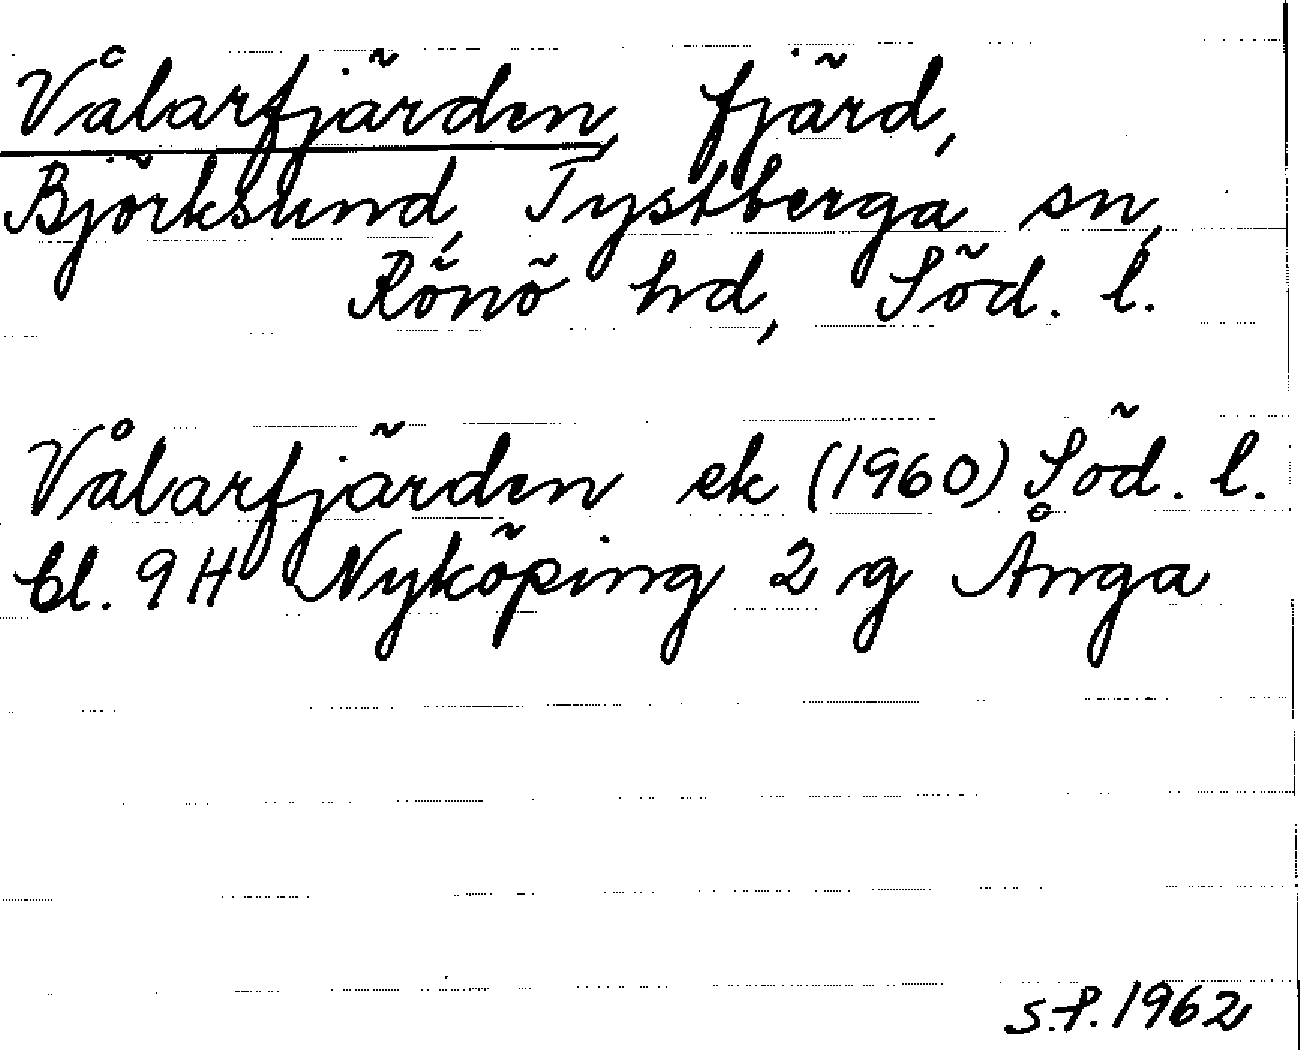 Vålarfjärden, fjärd,
Björksund, Tystberga sn,
Rönö hd, Söd. l.
Vålarfjärden ek (1960) Söd. l.
bl. 9H Nyköping 2 g Ånga
S.P. 1962